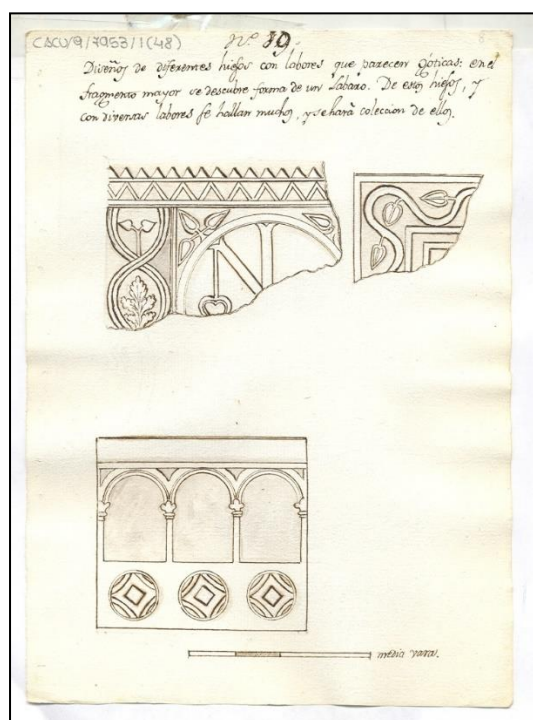 CACU/9/7953/1(48)
Nº. 39.
Diseños de diferentes hiesos con labores que parecen góticas: en el
fragmento mayor se descubre forma de un Labaro. De estos hiesos, y
con diversas labores se hallan muchos, y se hará coleccion de ellos.
media vara.